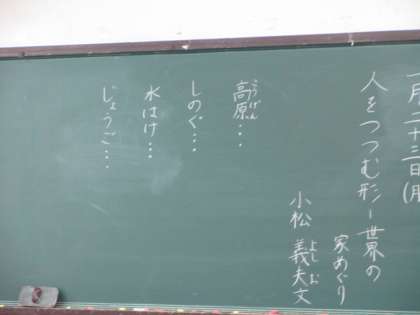 一月二十三日(月
人をつつむ形ー世界の
家めぐり
小松 義夫文
よしお
高原・・・
こうげん
しのぐ・・・
水はけ・・・
じょうご・・・